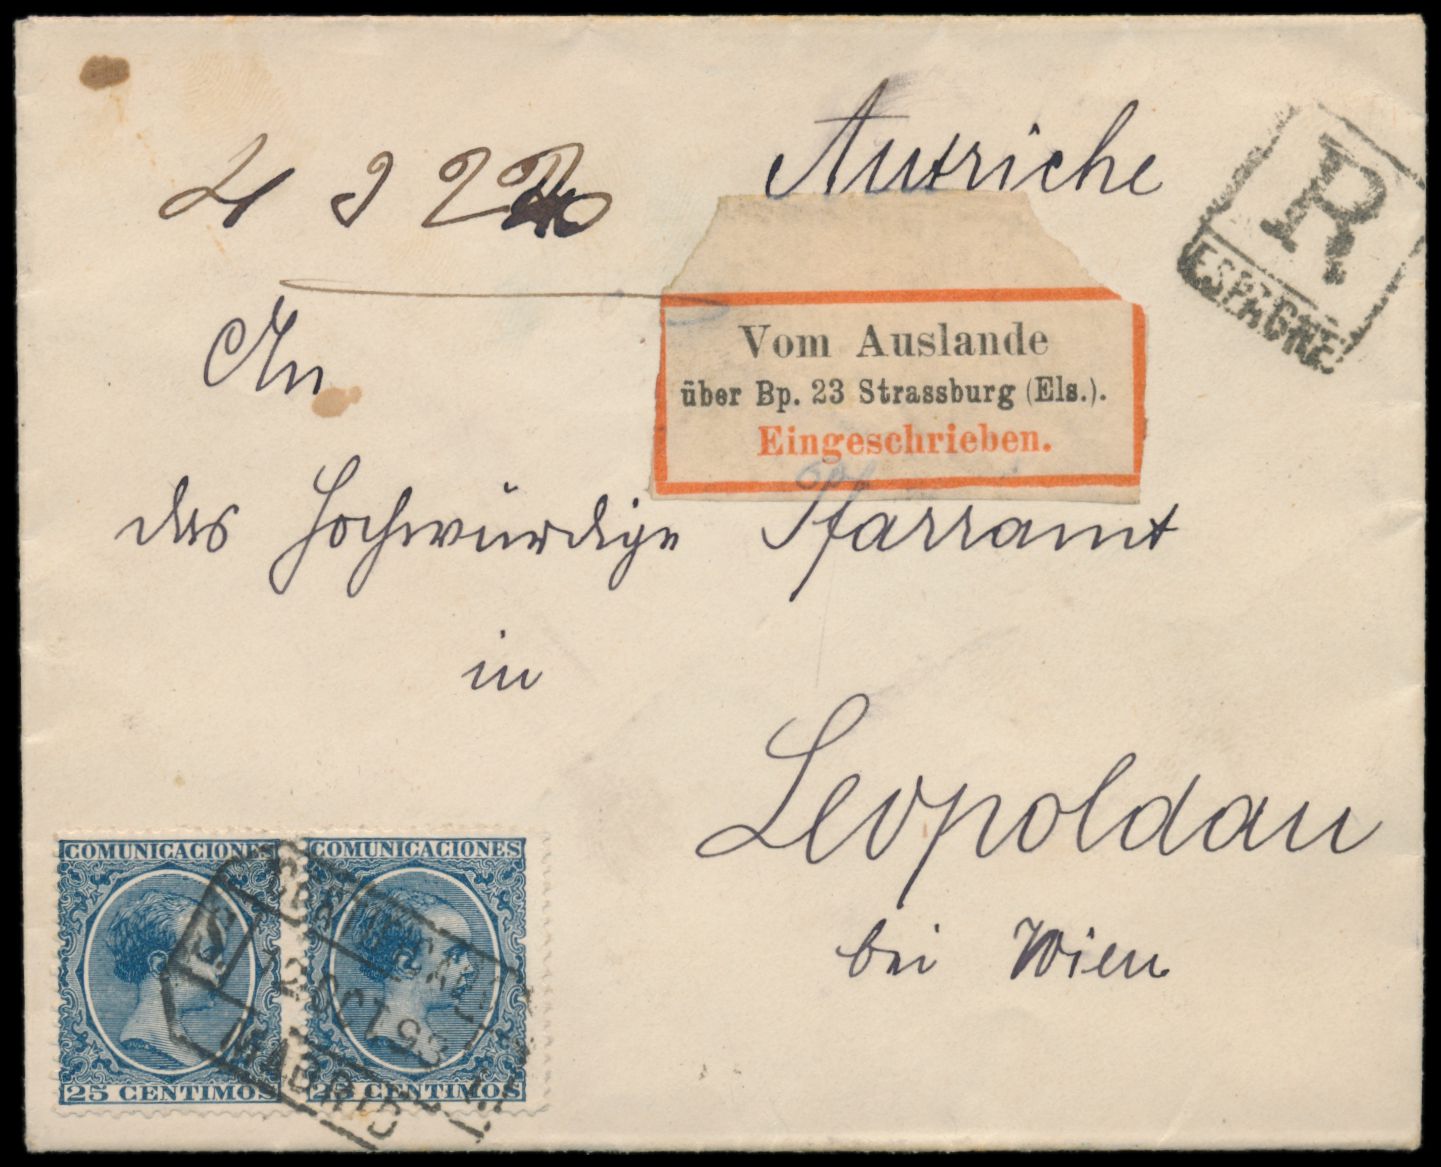 Autriche
R
ESPAGNE
Vom Auslande
über Bp. 23 Strassburg (Els.).
Eingeschrieben.
An
das Hochwürdige Pfarramt
in
Leopoldau
bei Wien
COMUNICACIONES COMUNICACIONES
12 OCT 93
MADRID
25 CENTIMOS 25 CENTIMOS